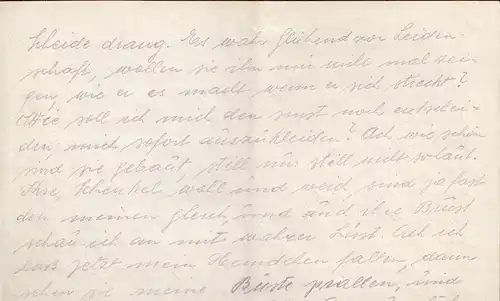 Kleide drang. Er wahr glühend vor Leiden-
schaft, wollen sie ihn mir nicht mal zei-
gen, wie er es macht wenn er sich streckt?
Wie soll ich mich den sonst noch entschei-
den, mich sofort auszukleiden? Ach, wie schön
sind sie gebaut, still nur still nicht so laut.
Ihre Schenkel woll und weich, sind ja fast
den meinen gleich, und auch ihre Büste
schau ich an mit wahrer Lust. Ach ich
laß jetzt mein Hemdchen fallen, dann
sehen sie meine Büste prallen, und